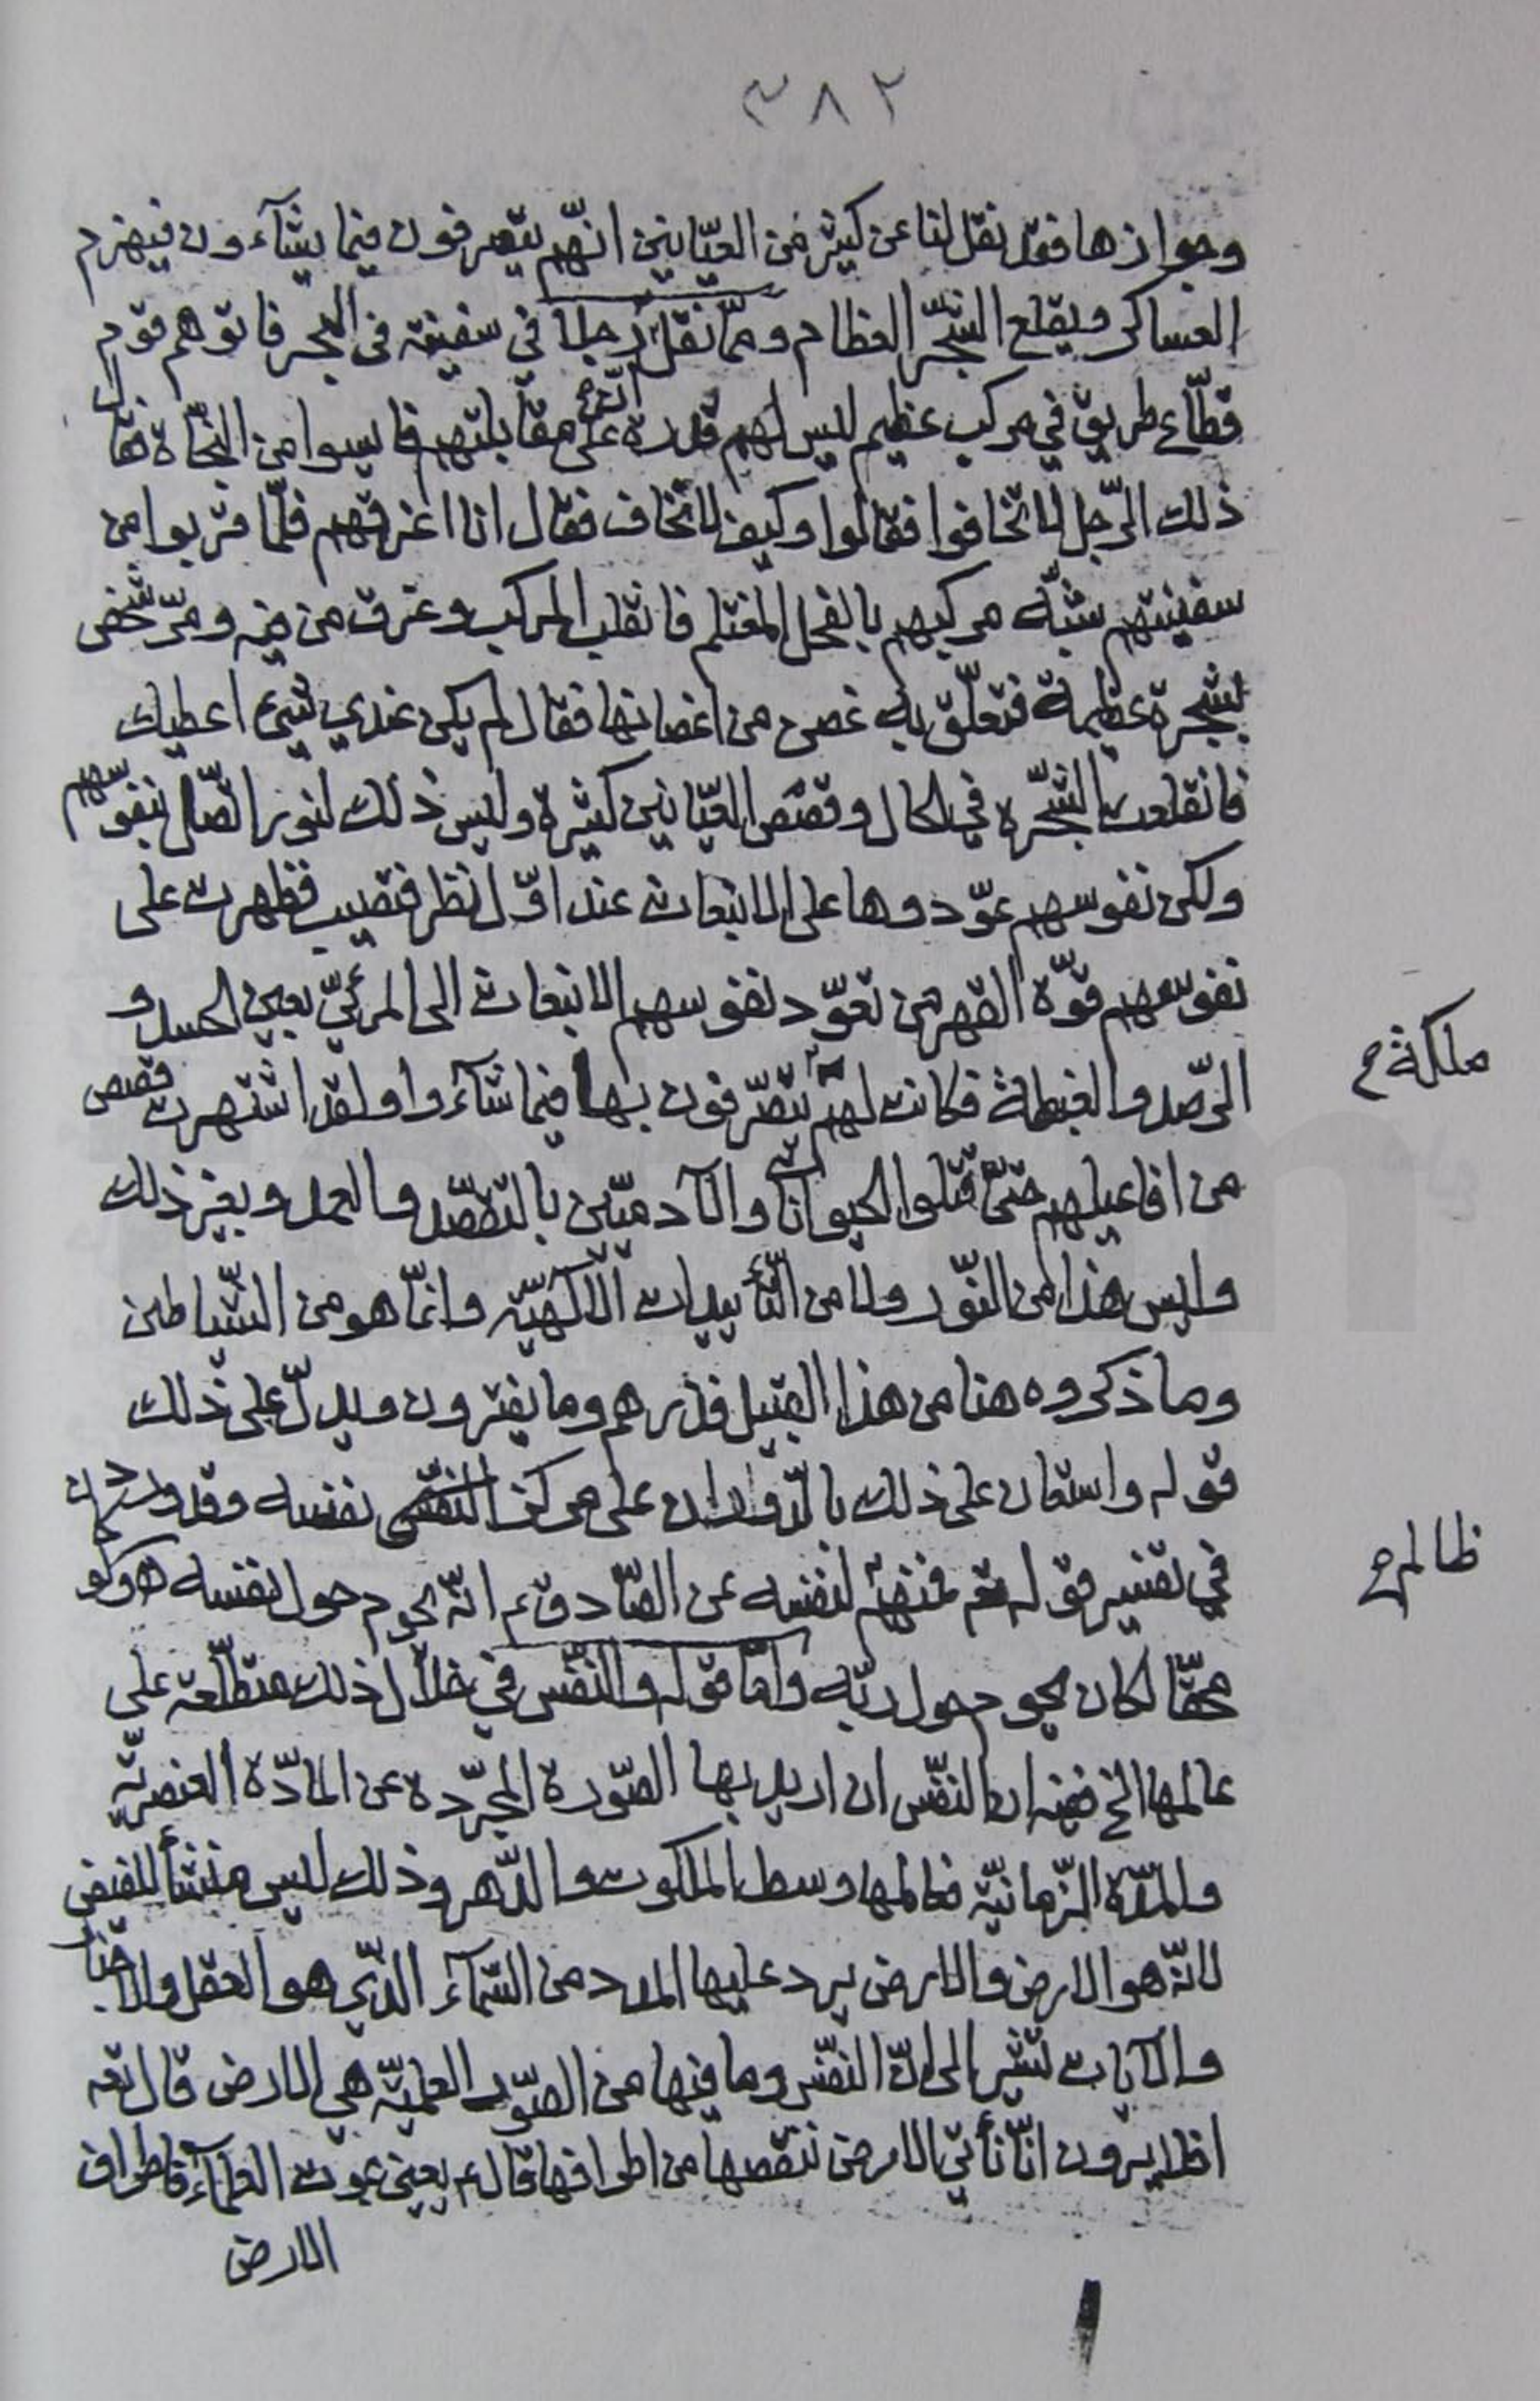 ٣٨٢
وجوازها فقد نقل لنا عن كثير من العيّانين انّهم يتصرفون فيما يشآءون فيهزم
العساكر ويقلع الشجّر العظام وممّا نقل انّ رجلا في سفينة في البحر فاتوهم قوم
قطّاع طريق في مركب عظيم ليس لهم قدرة على مقابلتهم فايسوا من النجّاة فقال
ذلك الرّجل لا تخافوا فقالوا وكيف لا نخاف فقال انا اغرقهم فلّما قربوا من
سفينتهم شبّه مركبهم بالفحل المغتلم فانقلب المركب وغرق من فيه ومرّ شخص
بشجرة عظيمة فتعلّق به غصن من اغصانها فقال لم يكن عندي شيء اعطيك
فانقلعت الشجّرة في الحال وقصص العيّانين كثيرة وليس ذلك لنور اتّصل بنفوسهم
ولكن نفوسهم عوّدوها على الانبعاث عند اوّل نظر فتصيب فظهرت على
نفوسهم قوّة القهر من تعوّد نفوسهم الانبعاث الى المرئيّ بعين الحسد و
الرّصد والغبطة فكانت لهم يتصرّفون بها فيما شآءوا ولقد اشتهرت قصص
ملكة ح
من افاعيلهم حتّى قتلوا الحيوانات والآدميّين بالتصّد والعمل وبغير ذلك
وليس هذا من النّور ولا من التّأييدات الآلهيّة وانّما هو من الشّياطين
وما ذكروه هنا من هذا القبيل فذرهم وما يفترون ويدلّ على ذلك
قوله واستعان على ذلك بالدّوران على مركز النفّس نفسه وقد ورد
في تفسير قوله تعم فمنهم لنفسه عن الصّادق ع انّه يحوم حول نفسه ولو كان
ظالم ح
محقّا لكان يحوم حول ربّه وامّا قوله والنفّس في خلال ذلك متطلّعة على
عالمها الخ ففيه ان النفّس ان اريد بها الصّورة المجرّدة عن المادّة العنصريّة
والمدّة الزّمانيّة فعالمها وسط الملكوت والدّهر وذلك ليس منشأ للفيض
لانّه هو الارض والارض يرد عليها المدد من السّمآء الذّي هو العقل والاخبار
والآيات تشير الى انّ النفّس وما فيها من الصوّر العلميّة هي الارض قال تعه
افلا يرون انّا نأتي الارض ننقصها من اطرافها قال ع يعني بموت العلمآء فاطراف
الارض